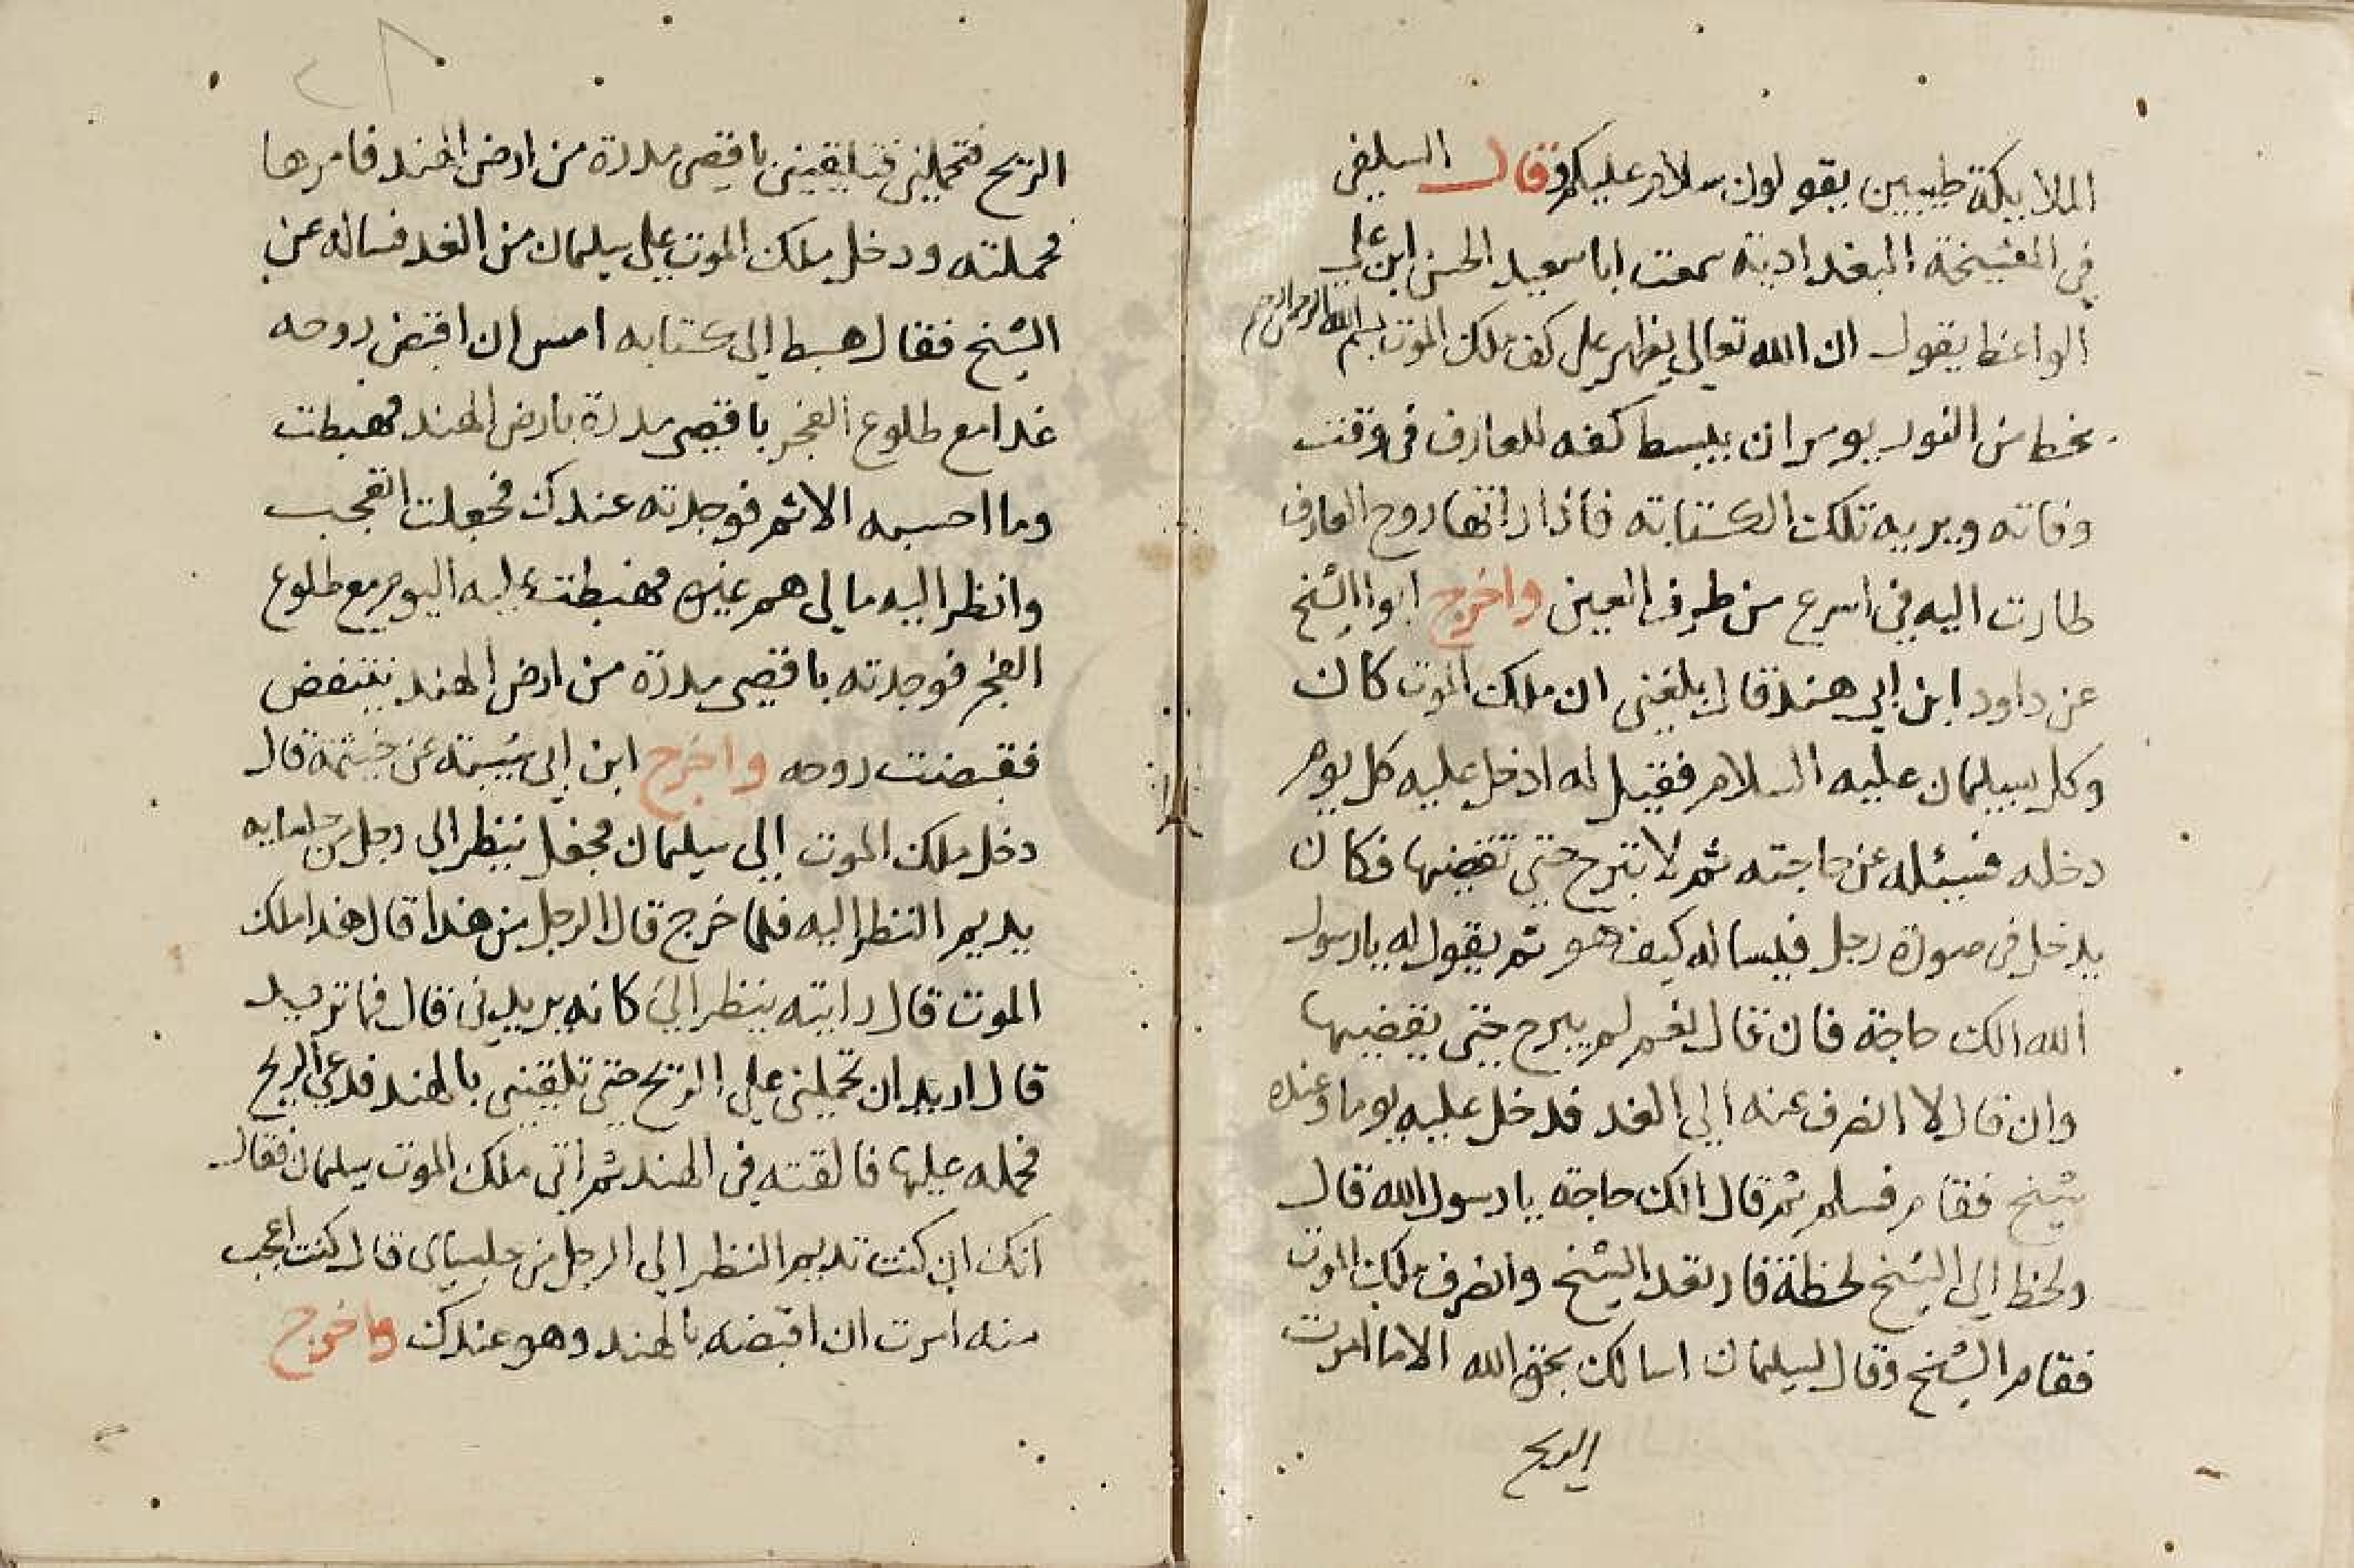 الملايكة طيبين يقولون سلام عليكم وقال السلفي
في المشيخة البغدادية سمعت ابا سعيد الحسن ابن علي
الواعظ يقول ان الله تعالى يظهر على كف ملك الموت بسم الله الرحمن الرحيم
بخط من النور يومر ان يبسط كفه للعارف في وقت
وفاته ويريه تلك الكتابة فاذا راتها روح العارف
طارت اليه في اسرع من طرف العين واخرج ابوا الشيخ
عن داود ابن ابي هند قال بلغني ان ملك الموت كان
وكل بسيلمان عليه السلام فقيل له ادخل عليه كل يوم
دخله فسئله عن حاجته ثم لا تبرح حتى تقضيها فكان
يدخل في صورة رجل فيساله كيف هو ثم يقول له يا رسول
الله الك حاجة فان قال نعم لم يبرح حتى يقضيها
وان قال لا انصرف عنه الى الغد فدخل عليه يوما وعنده
شيخ فقام فسلم ثم قال الك حاجة يا رسول الله قال
ولحظ الى الشيخ لحظة فارتعد الشيخ وانصرف ملك الموت
فقام الشيخ وقال لسيلمان اسالك بحق الله الا ما امرت
الريح
٢٨
الريح فتحملني فتلقيني باقصى مدرة من ارض الهند فامرها
فحملته ودخل ملك الموت على سيلمان من الغد فساله عن
الشيخ فقال هبط الي كتابه امس ان اقبض روحه
غدا مع طلوع الفجر باقصى مدرة بارض الهند فهبطت
وما احسبه الا ثم فوجدته عندك فجعلت اتعجب
وانظر اليه مالي هم غيره فهبطت عليه اليوم مع طلوع
الفجر فوجدته باقصى مدرة من ارض الهند ينتفض
فقبضت روحه واخرج ابن ابي شيبة عن خيثمة قال
دخل ملك الموت الى سيلمان فجعل ينظر الى رجل من جلسايه
يديم النظر اليه فلما خرج قال الرجل من هذا قال هذا ملك
الموت قال رايته ينظر الي كانه يريدني قال فما تريد
قال اريد ان تحملني على الريح حتى تلقيني بالهند فدعى الريح
فحمله عليها فالقته في الهند ثم اتى ملك الموت سيلمان فقال
انك ان كنت تديم النظر الى الرجل من جلساي قال كنت اعجب
منه امرت ان اقبضه بالهند وهو عندك واخرج